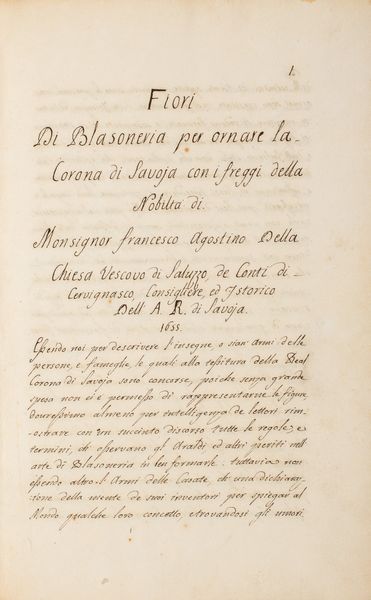 1.
Fiori
Di Blasoneria per ornare la
Corona di Savoja con i freggi della
Nobiltà di.
Monsignor francesco Agostino Della
Chiesa Vescovo di Saluzzo, de Conti di
Cervignasco, Consigliere, ed Istorico
Dell' A. R. di Savoja.
1655.
Essendo noi per descrivere l'insegne, o sian armi delle
persone, e fameglie, le quali alla tessitura della Real
Corona di Savoja sono concorse, poiche senza grande
spesa non ci è permesso di rappresentarne le figure
douressimo almeno per intelligenza de lettori dim-
ostrare con un succinto discorso tutte le regole, e
termini, ch'osservano gli Araldi ed altri periti nell'
arte di Blasoneria in ben formarle: tuttavia non
essendo altro l'Armi delle Casate, ch'una dichiara-
zione della mente de suoi inventori per spiegar al
Mondo qualche loro concetto, e trovandosi gli umori